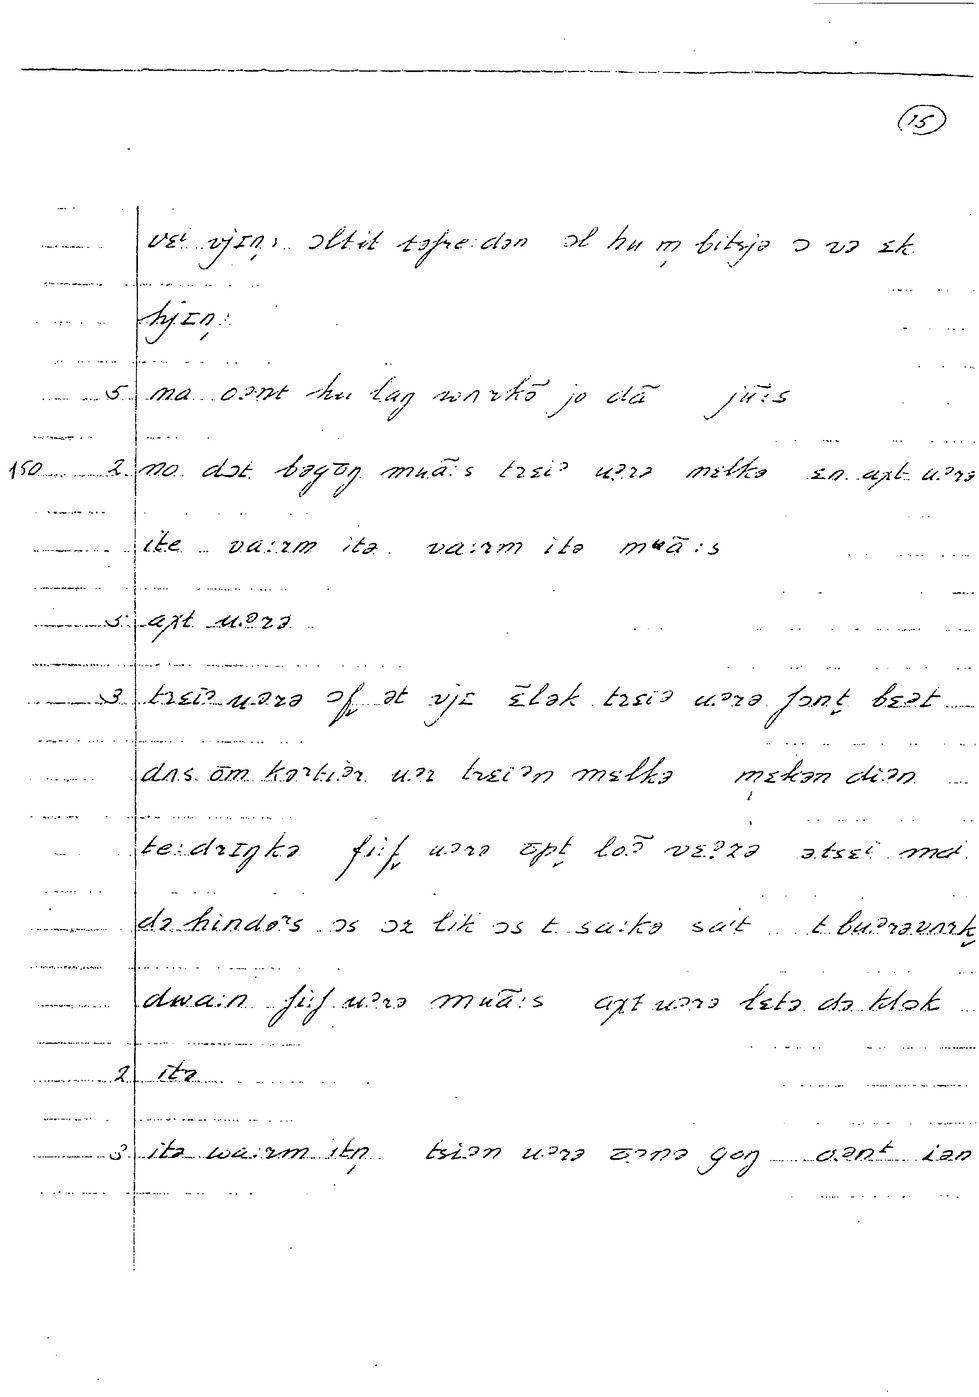 15
vɛi vjɪn̩: ɔltit təfre:dən ɔl hu m̩ bitsjə ɔ və ɛk
hjɪn̩:
5 ma oənt hu laŋ wʌrkõ jo dā jū:s
150 2 no dɔt bəgōŋ muā:s trɛiə uərə mɛlkə ɛn aχt uərə
ite va:rm itə va:rm itə muā:s
5 aχt uərə
3 trɛiə uərə ɔf̬ ət vjɪ ɛ̄lək trɛiə uərə fɔnt̬ bɛət
dʌs ōm kərtiər uər trɛiən mɛlkə m̩ɛkən diən
te:drɪŋkə fi:f̬ uərə ɔ̄pt̬ loɔ̄ vɛ?rə ətsɛi mɑi
də hindərs ɔs ɔr lik ɔs t sa:kə sait t buərəvʌrk̬
dwa:n fi:f uərə muā:s aχt uərə lɛtə də klɔk
2 itə
3 itə wa:rm itn̩ tsiən uərə ɪ̄ənə goŋ oənt iən